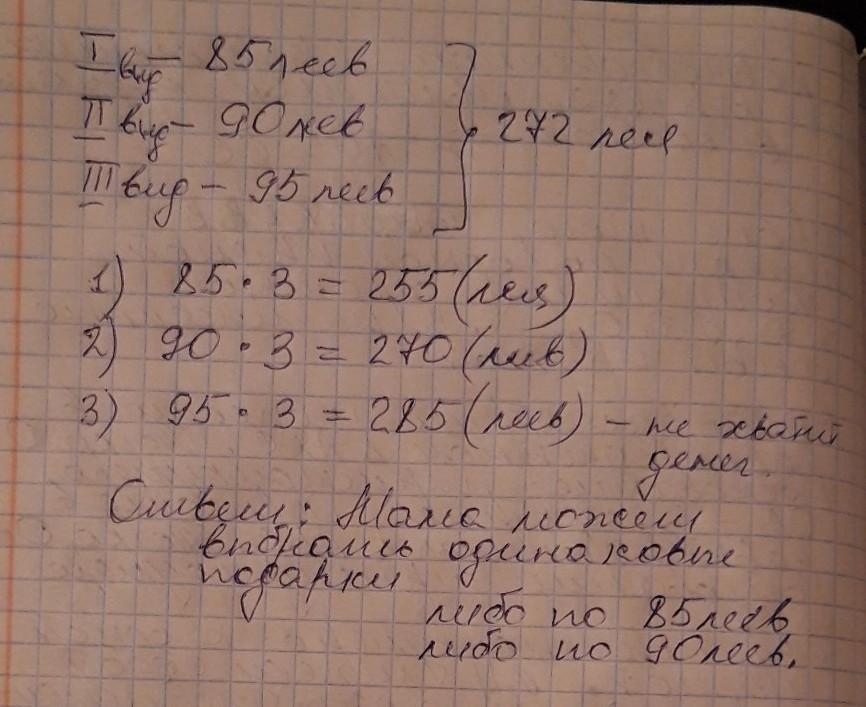 I вид - 85 леев
II вид - 90 леев
III вид - 95 леев
272 лея
1) 85 · 3 = 255 (лея)
2) 90 · 3 = 270 (леев)
3) 95 · 3 = 285 (леев) - не хватит
денег.
Ответ: Мама может
выбрать одинаковые
подарки
либо по 85 леев
либо по 90 леев.